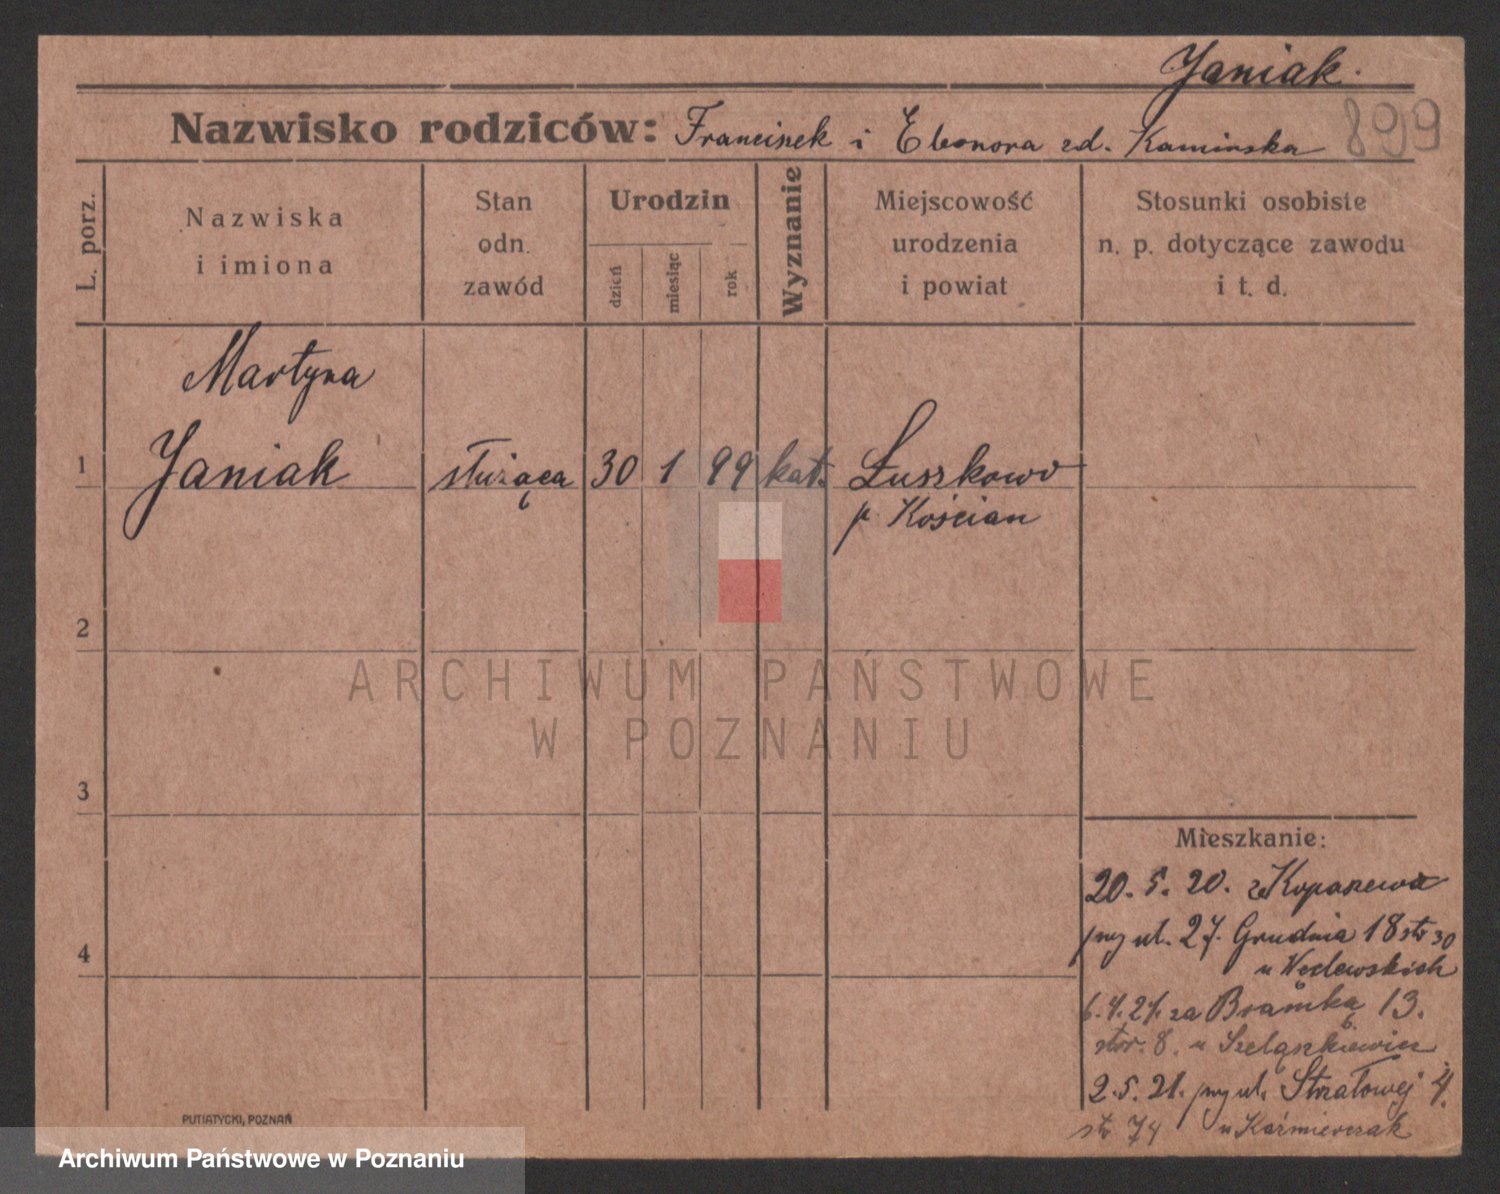 Janiak.
Nazwisko rodziców: Franciszek i Eleonora zd. Kamińska 899
L. porz.
Nazwiska
i imiona
Stan
odn.
zawód
Urodzin
dzień
miesiąc
rok
Wyznanie
Miejscowość
urodzenia
i powiat
Stosunki osobiste
n. p. dotyczące zawodu
i t. d.
Martyna
1 Janiak służąca 30 1 99 kat. Łuszkowo
p. Kościan
2
3
4
ARCHIWUM PAŃSTWOWE
W POZNANIU
Mieszkanie:
20. 5. 20. z Kopaszewa
przy ul. 27. Grudnia 18 str 30
u Węclewskich
6. 4. 21. za Bramką 13.
str. 8. u Szelążkiewicz
2. 5. 21. przy ul. Strzałowej 4.
str 74 u Kaźmierczak
PUTIATYCKI, POZNAŃ
Archiwum Państwowe w Poznaniu